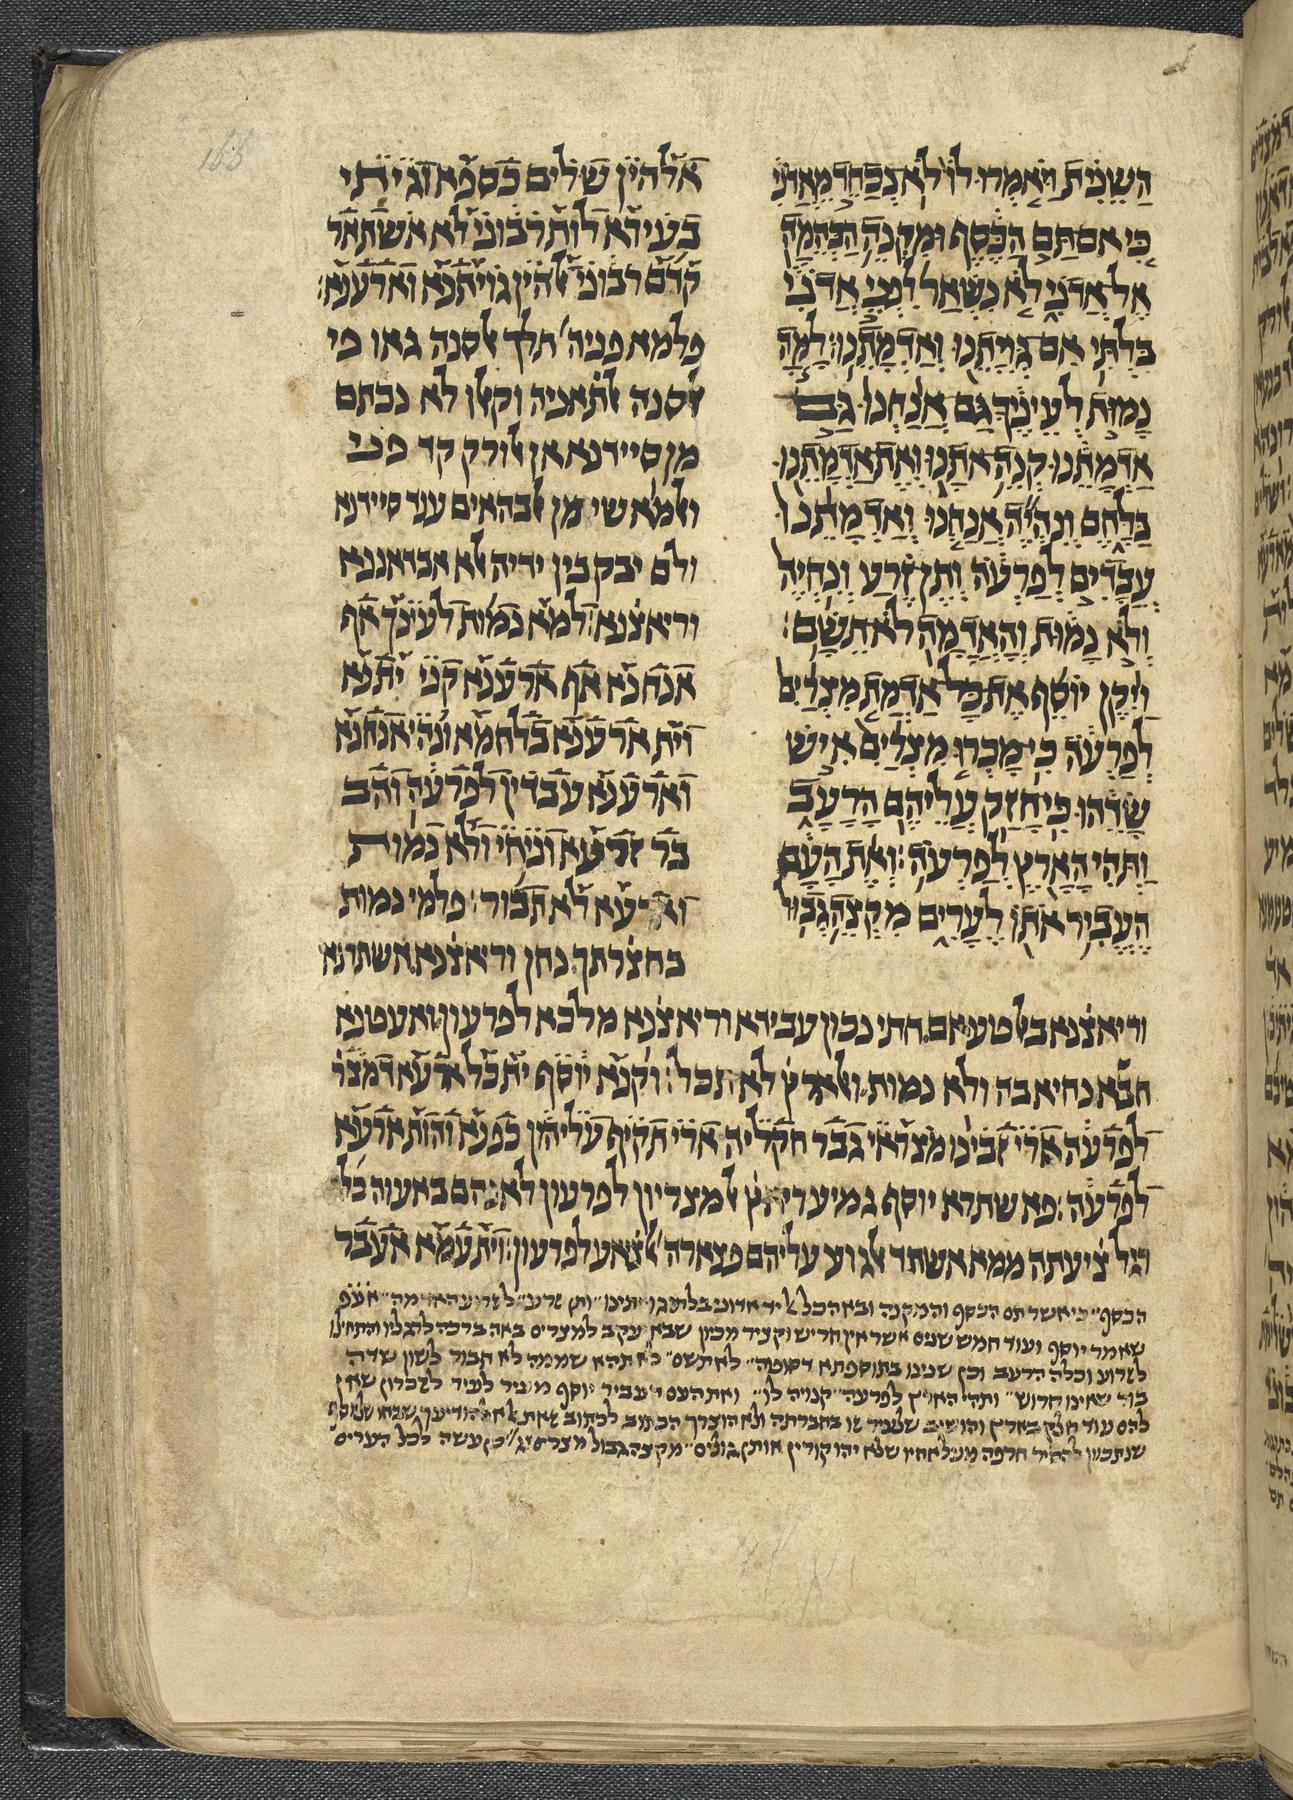 השנית ויאמרו לו לא נכחד מאדני
כי אם תם הכסף ומקנה הבהמה
אל אדני לא נשאר לפני אדני
בלתי אם גויתנו ואדמתנו: למה
נמות לעיניך גם אנחנו גם
אדמתנו קנה אתנו ואת אדמתנו
בלחם ונהיה אנחנו ואדמתנו
עבדים לפרעה ותן זרע ונחיה
ולא נמות והאדמה לא תשם:
ויקן יוסף את כל אדמת מצרים
לפרעה כי מכרו מצרים איש
שדהו כי חזק עליהם הרעב
ותהי הארץ לפרעה: ואת העם
העביר אתו לערים מקצה גבול
אלהין שלים כספא וגיתי
בעירא לות רבוני לא אשתאר
קדם רבוני אלהין גויתנא וארענא:
פלמא פניה תלך אלסנה גאו פי
אלסנה אלתאניה וקאלו לא נכתם
מן סיידנא אן אלורק קד פני
ואלמאשי מן אלבהאים ענד סיידנא
ולם יבק בין ידיה אלא אבדאננא
וריאצנא: למא נמות לעינך אף
אנחנא אף ארענא קני יתנא
וית ארענא בלחמא ונהי אנחנא
וארענא עבדין לפרעה והב
בר זרעא וניחי ולא נמות
וארעא לא תבור: פלמי נמות
בחצרתך נחן וריאצנא אשתרנא
וריאצנא באלטעאם חתי נכון עבידא וריאצנא מלכא לפרעון ואעטנא
חבא נחיא בה ולא נמות ואלארץ לא תכל: וקנא יוסף ית כל ארעא דמצר
לפרעה ארי זבינו מצראי גבר חקליה ארי תקיף עליהון כפנא והות ארעא
לפרעה: פאשתרא יוסף גמיע ריאץ אלמצריון לפרעון לאנהם באעוה כל
רגל ציעתה ממא אשתד אלגוע עליהם פצארה אלציאע לפרעון: וית עמא אעבר
הכסף כי אשר תם הכסף והמקנה ובא הכל אל יד אדוני בלתי גויתינו ותן זרע לזרוע האדמה
שאמר יוסף ועוד חמש שנים אשר אין חריש וקציר מכיון שבא יעקב למצרים באה ברכה לרגליו והתחילו
לזרוע וכלה הרעב וכן שנינו בתוספתא דסוטה לא תשם לא תהא שממה לא תבור לשון שדה
בור שאינו חרוש ותהי הארץ לפרעה קנויה לו ואת העם העביר יוסף מעיר לעיר לזכרון שאין
להם עוד חלק בארץ והושיב של עיר זו בחברתה ולא הוצרך הכתוב לכתוב זאת אלא להודיעך שבחו של יוסף
שנתכוון להסיר חרפה מעל אחיו שלא יהו קורין אותן גולים מקצה גבול מצרים וג' כן עשה לכל הערים